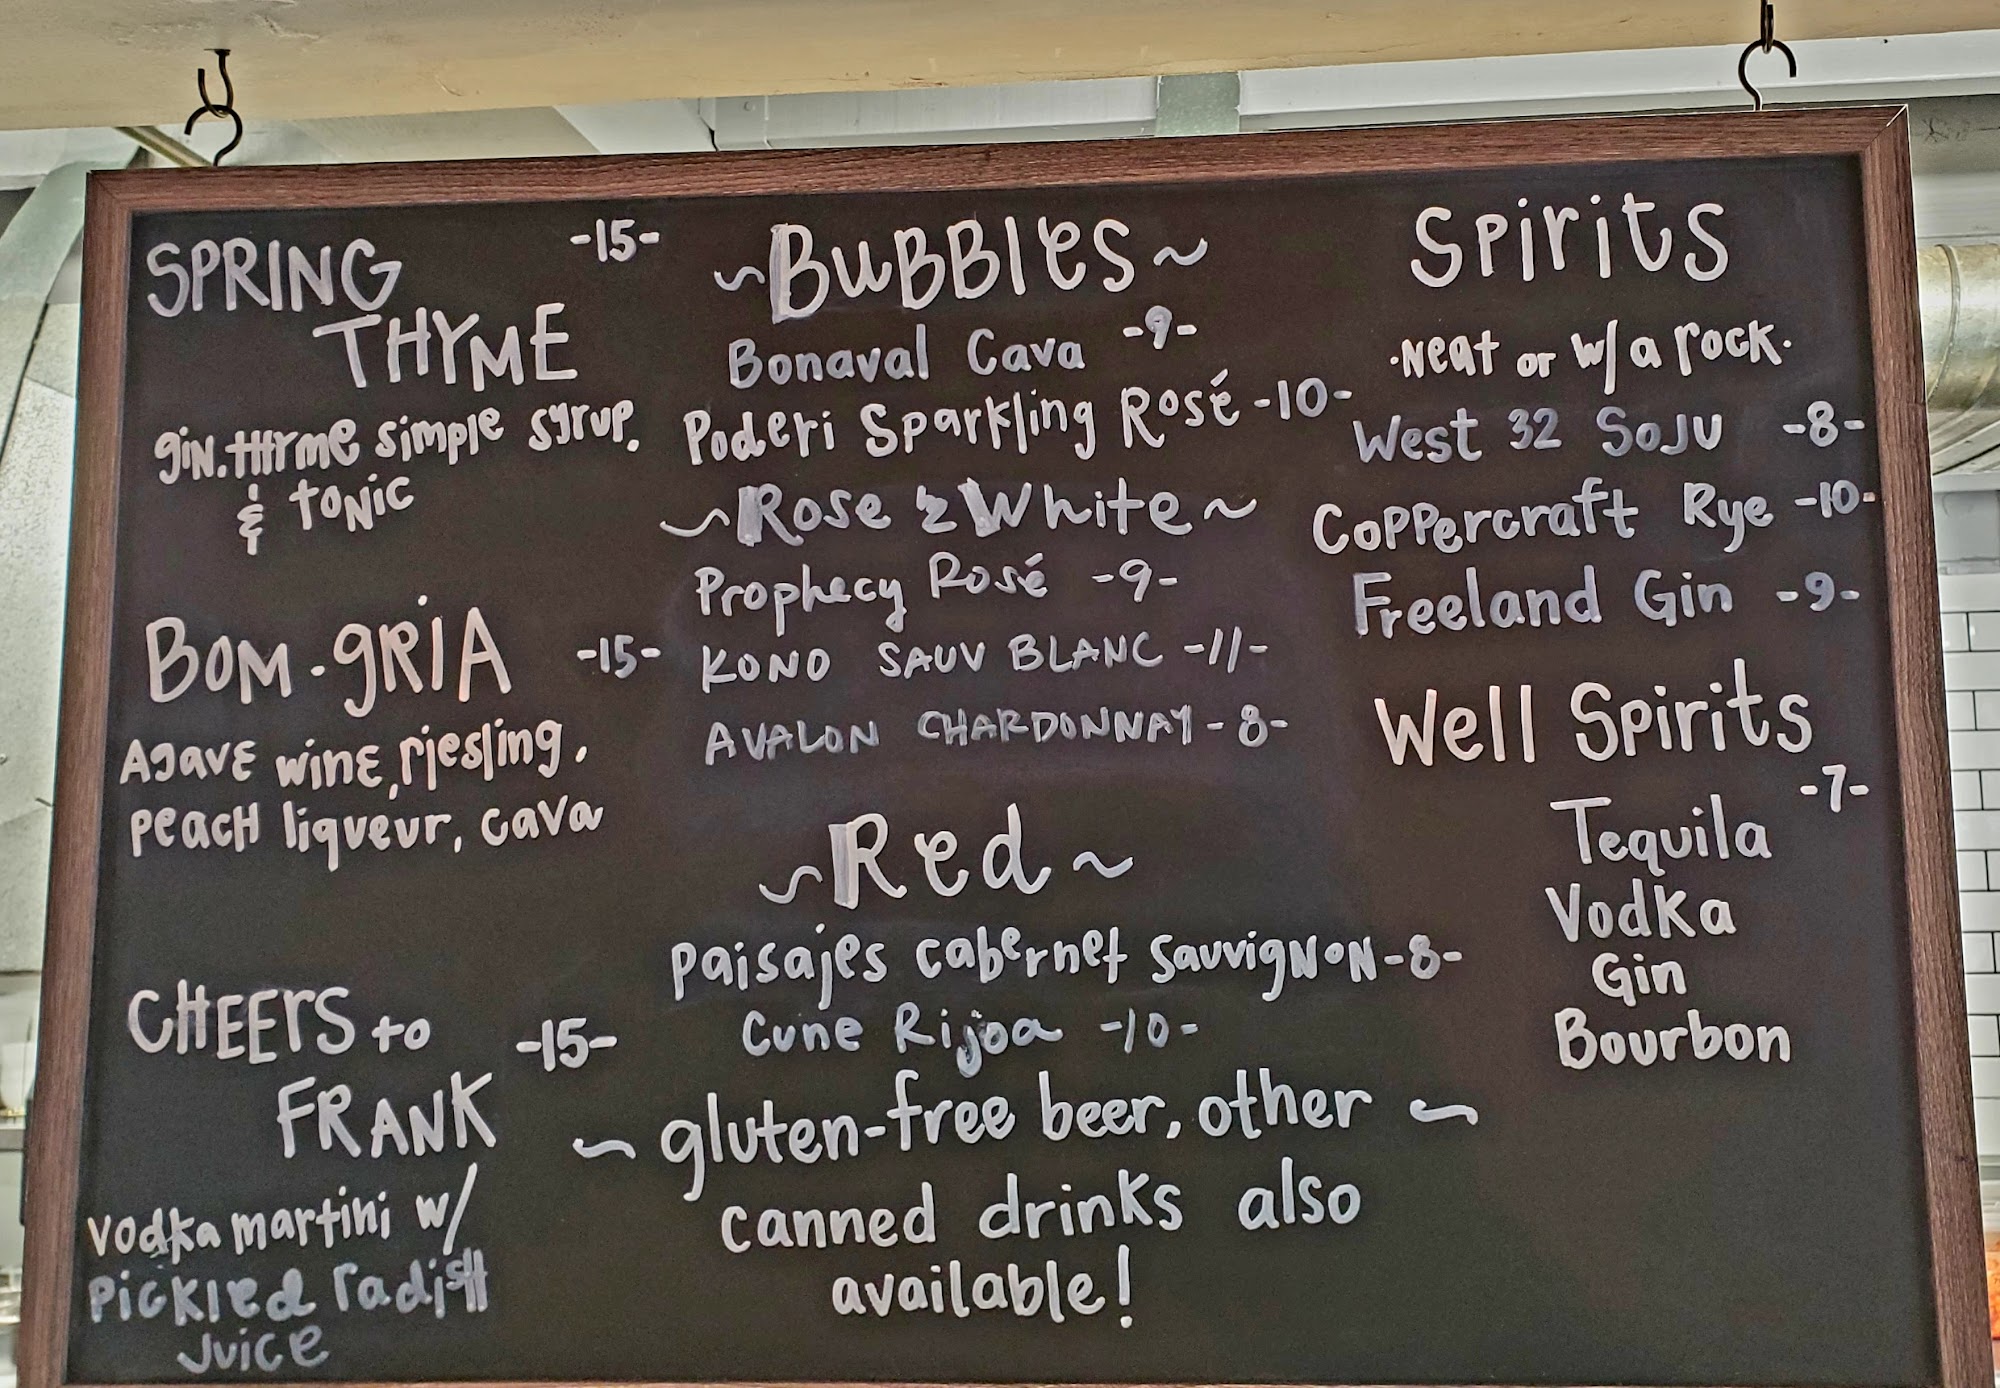 SPRING -15-
THYME
gin, thyme simple syrup,
& tonic
BOM-gRIA -15-
Agave wine, riesling,
peach liqueur, cava
CHEERS to
FRANK -15-
vodka martini w/
pickled radish
juice
~Bubbles~
Bonaval Cava -9-
Poderi Sparkling Rosé -10-
~Rose & White~
Prophecy Rosé -9-
KONO SAUV BLANC -11-
AVALON CHARDONNAY -8-
~Red~
paisajes cabernet sauvignon -8-
Cune Rijoa -10-
~ gluten-free beer, other ~
canned drinks also
available!
Spirits
·Neat or w/ a rock·
West 32 Soju -8-
Coppercraft Rye -10-
Freeland Gin -9-
Well Spirits
-7-
Tequila
Vodka
Gin
Bourbon